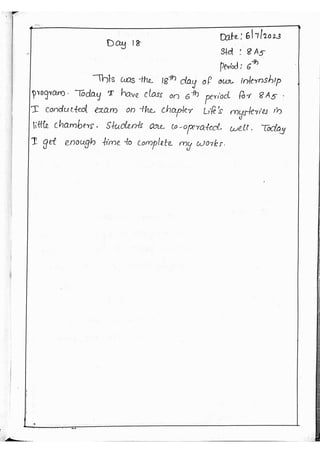 Date: 6/7/2023
Day 18
Std : 8 A5
Period: 6th
This was the 18th day of our internship
program. Today I have class on 6th period for 8A5.
I conducted exam on the chapter Life's mysteries in
little chambers. Students are co-operated well. Today
I get enough time to complete my works.